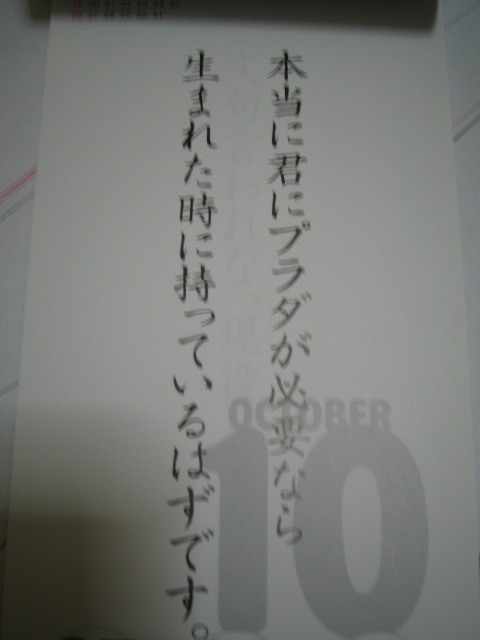 本当に君にプラダが必要なら
生まれた時に持っているはずです。
OCTOBER
10